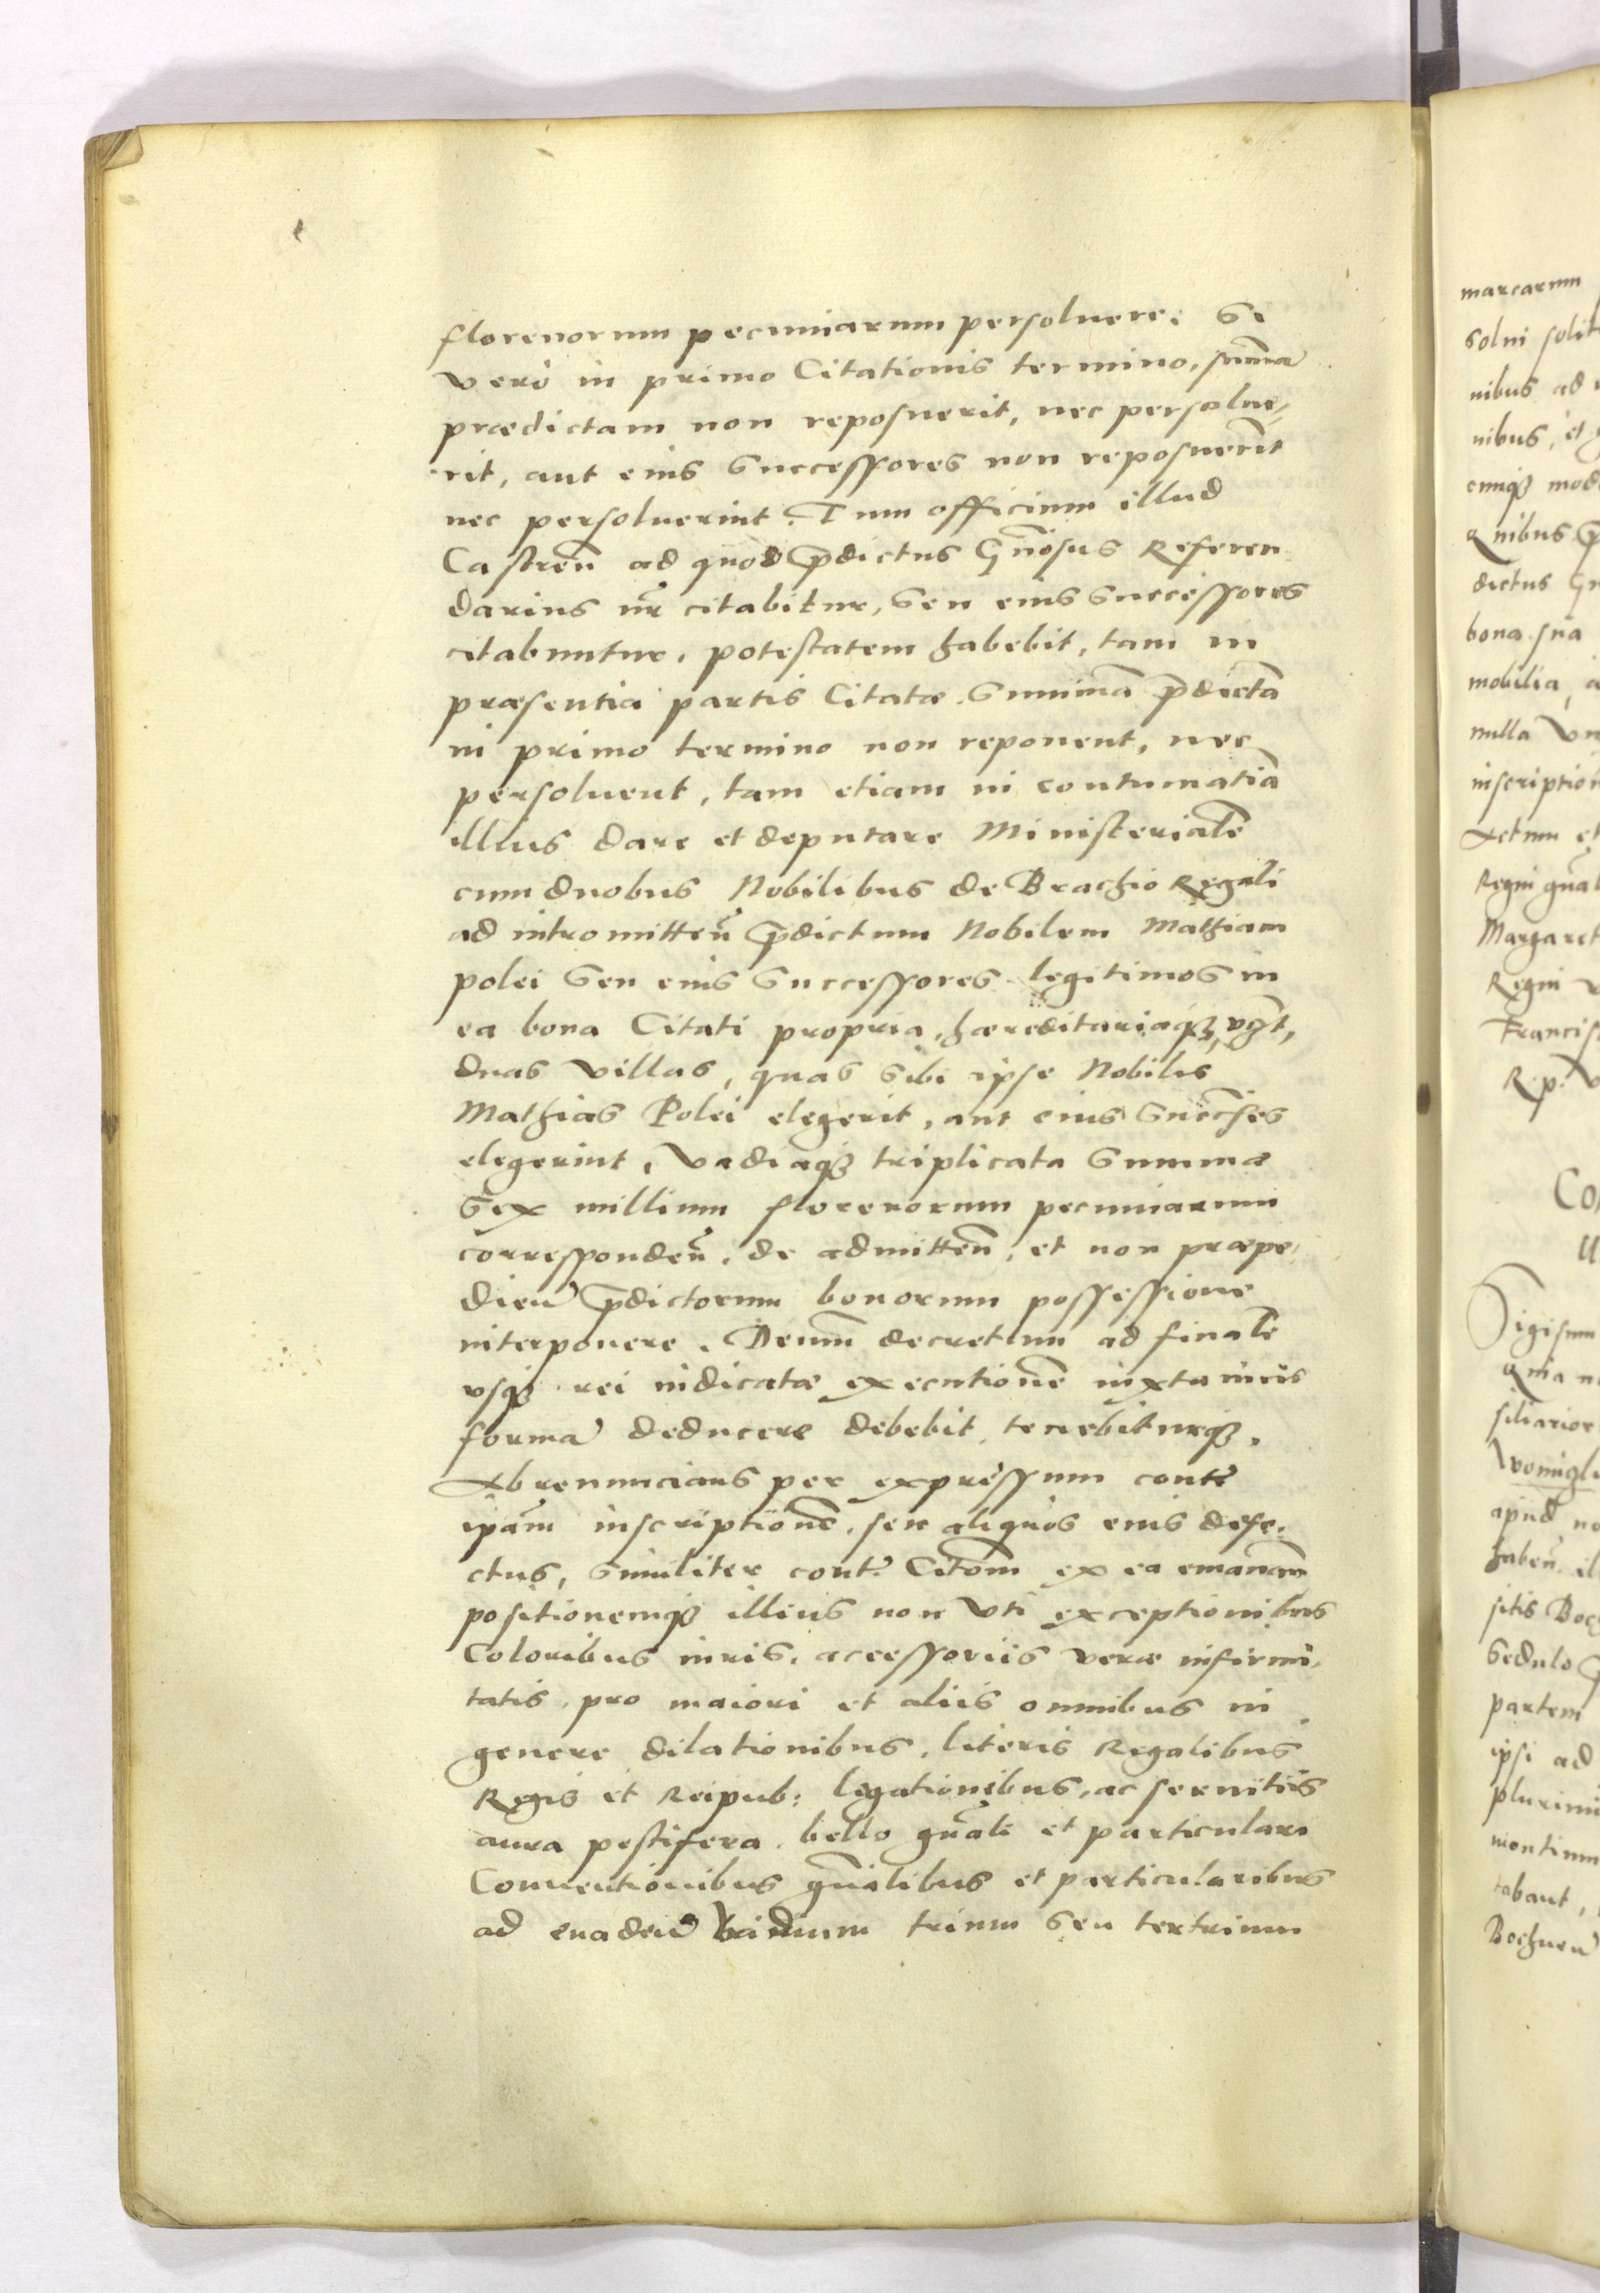 florenorum pecuniarum persoluere. Si
vero in primo Citationis termino, sum̃a
prædictam non reposuerit, nec persolue,
rit, aut eius Successores non reposuerīt
nec persoluerint. Tum officium illud
Castreñ ad quod p̄dictus Gñosus Referen
darius nr̃ citabitur, Seu eius Successores
citabuntur, potestatem habebit, tam in
præsentia partis Citatæ Summā p̄dictā
in primo termino non reponent, nec
persoluent, tam etiam in contumatiā
illius dare et deputare Ministerialē
cum duobus Nobilibus de Brachio Regali
ad intromitteñ p̄dictum Nobilem Mathiam
polei Seu eius Successores legitimos in
ea bona Citati propria, hæreditariaqȝ, vꝫt,
duas villas, quas Sibi ipse Nobilis
Mathias Polei elegerit, aut eius Succ̃ses
elegerint, Vadiaqȝ triplicata Summæ
Sex millium florenorum pecuniarum
correspondeñ, de admitteñ, et non præpe,
dieñ p̄dictorum bonorum possessione
interponere. Demum decretum ad finalē
vsqȝ rei iudicatæ executionē iuxta iuris
formā deducere debebit, tenebiturqȝ.
Abrenuncians per expressum contr̃
ipām inscriptionē, seu aliquos eius defe,
ctus, Similiter contr̃ Cit̃om ex ea emanañ
positionemqȝ illius non Vti exceptionibus
Coloribus iuris, accessoriis veræ infirmi,
tatis, pro maiori et aliis omnibus in
genere dilationibus, literis Regalibus
Regis et Reipub: legationibus, ac seruitiis
aura pestifera, bello gñali et particulari
Conuentionibus gñalibus et particularibus
ad euadeñ trinum seu tertrium
marcarum
solui solit
nibus ad
nibus, et
cuiqȝ mod
Quibus
dictus
bona sua
mobilia, a
nulla
inscription
Actum et
Regni
Margaret
Regni
Francis
R. p.
Co
Sigism
Quia n
siliarior
apud no
habeñ il
sitis Boc
Sedulo
partem
ipsi ad
plurimi
montium
tabant,
Bochneñ